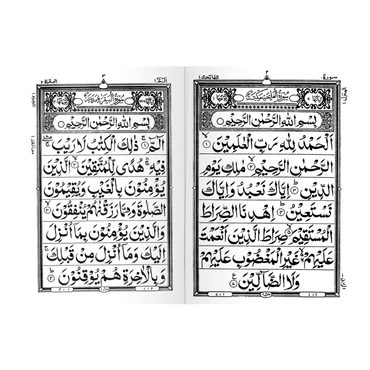 سورة ٢ الفاتحة ١
بِسْمِ اللهِ الرَّحْمٰنِ الرَّحِيْمِ
اَلْحَمْدُ لِلّٰهِ رَبِّ الْعٰلَمِيْنَ
الرَّحْمٰنِ الرَّحِيْمِ مٰلِكِ يَوْمِ
الدِّيْنِ اِيَّاكَ نَعْبُدُ وَاِيَّاكَ
نَسْتَعِيْنُ اِهْدِنَا الصِّرَاطَ
الْمُسْتَقِيْمَ صِرَاطَ الَّذِيْنَ اَنْعَمْتَ
عَلَيْهِمْ غَيْرِ الْمَغْضُوْبِ عَلَيْهِمْ
وَلَا الضَّآلِّيْنَ
الٓمّٓ ١ ٣ البقرة ٢
بِسْمِ اللهِ الرَّحْمٰنِ الرَّحِيْمِ
الٓمّٓ ذٰلِكَ الْكِتٰبُ لَا رَيْبَ
فِيْهِ هُدًى لِّلْمُتَّقِيْنَ الَّذِيْنَ
يُؤْمِنُوْنَ بِالْغَيْبِ وَيُقِيْمُوْنَ
الصَّلٰوةَ وَمِمَّا رَزَقْنٰهُمْ يُنْفِقُوْنَ
وَالَّذِيْنَ يُؤْمِنُوْنَ بِمَآ اُنْزِلَ
اِلَيْكَ وَمَآ اُنْزِلَ مِنْ قَبْلِكَ
وَبِالْاٰخِرَةِ هُمْ يُوْقِنُوْنَ